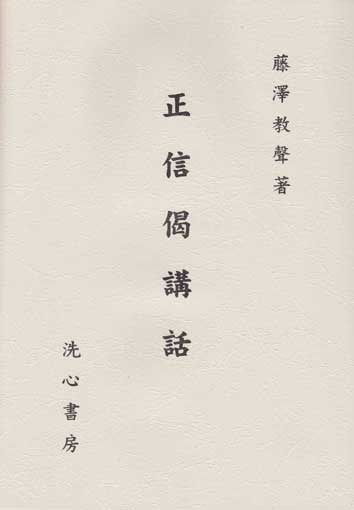 藤澤教聲著
正信偈講話
洗心書房